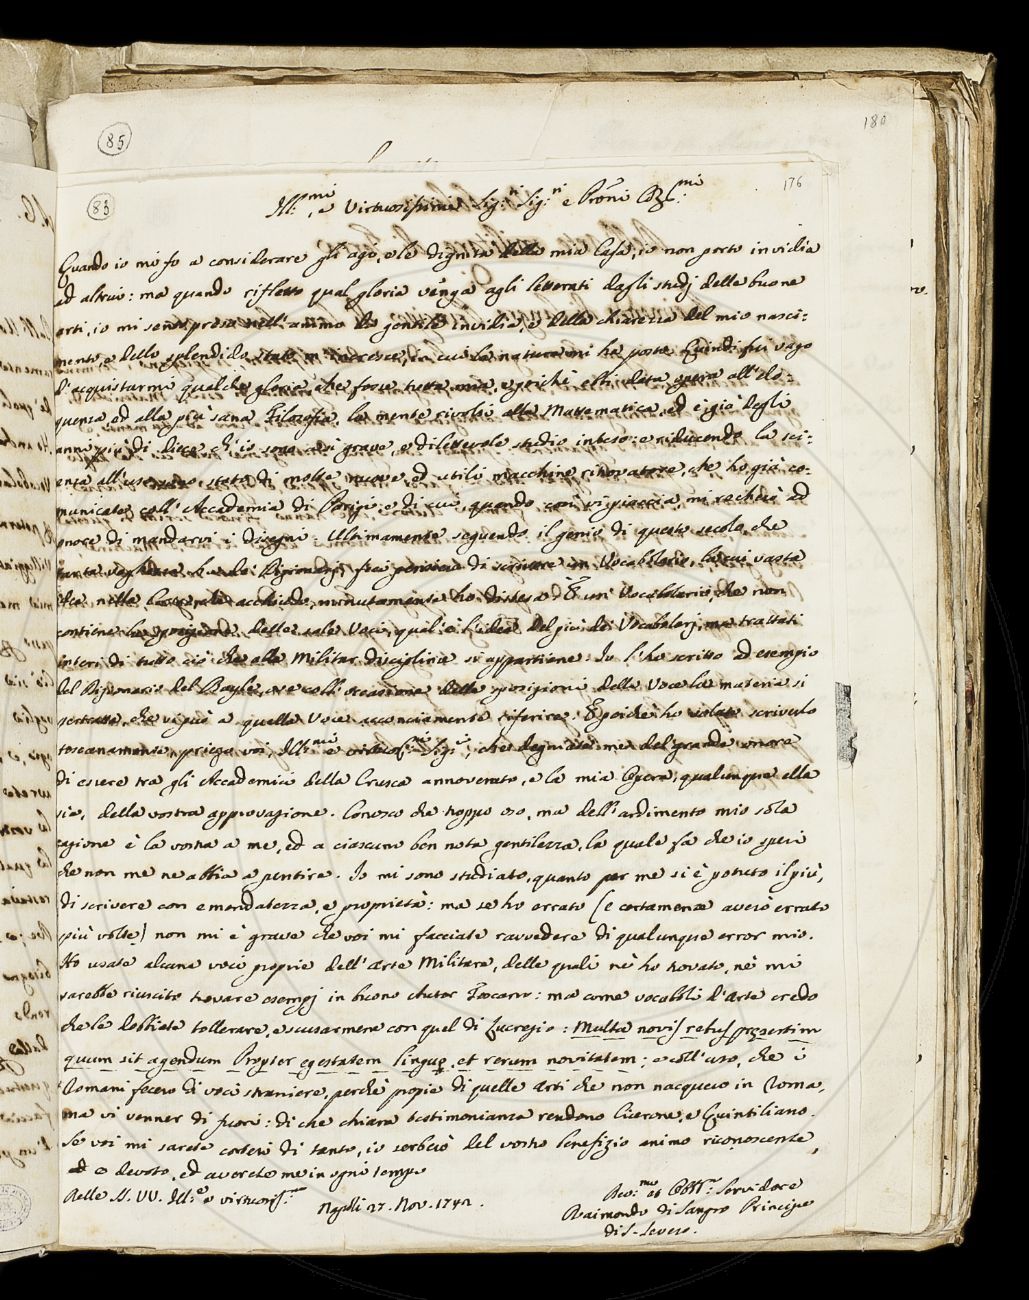 85
180
83
176
Ill.mi, e Virtuosissimi Sig.ri Sig.ri e Proni Col.mi
Quando io mi fo a considerare gli agi, e le dignità della mia Casa, io non porto invidia
ad altrui: ma quando rifletto qual gloria venga agli letterati dagli studj delle buone
arti, io mi sento preso nell'animo da gentile invidia, e della chiarezza del mio nasci-
mento, e dello splendido stato m'incresce, in cui la natura mi ha posto. Quindi fui vago
d'acquistarmi qualche gloria, che fosse tutta mia, e poichè ebbi data opera all'elo-
quenza, ed alla più sana Filosofia, la mente rivolsi alla Matematica, ed è già degli
anni più di dieci, ch'io sono a sì grave, e dilettevole studio inteso: e riducendo la sci-
enza all'uso sono stato di molte nuove, ed utili macchine ritrovatore, che ho già co-
municate coll'Accademia di Parigi, e di cui, quando così vi piaccia, mi recherò ad
onore di mandarvi i disegni. Ultimamente seguendo il genio di questo secolo, che
tanta vaghezza ha de' Dizionarj, feci pensiero di scrivere un Vocabolario, la cui vasta
idea nella acchiudo, minutamente ho distesa. È un Vocabolario, che non
contiene la spiegazione delle sole Voci, qual'è l'idea del più de' Vocabolarj, ma trattati
interi di tutto ciò che alla Militar disciplina si appartiene. Io l'ho scritto ad esempio
del Dizionario del Bayle, ove coll'occasione della sposizione della Voce la materia si
, che vi può a quella Voce acconciamente riferire. E poichè ho voluto scriverlo
toscanamente, priego voi, Ill.mi e virtuos.mi Sig.i, che degniate me del grande onore
di essere tra gli Accademici della Crusca annoverato, e la mia Opera, qualunque ella
sia, della vostra approvazione. Conosco che troppo oso, ma dell'ardimento mio sola
cagione è la vostra a me, ed a ciascuno ben nota gentilezza, la quale fa che io speri
che non me ne abbia a pentire. Io mi sono studiato, quanto per me si è potuto il più,
di scrivere con emendatezza, e proprietà: ma se ho errato (e certamente averò errato
più volte) non mi è grave che voi mi facciate ravvedere di qualunque error mio.
Ho usate alcune voci proprie dell'Arte Militare, delle quali nè ho trovato, nè mi
sarebbe riuscito trovare esempj in buono Autor Toscano: ma come vocaboli d'Arte credo
che le dobbiate tollerare, e scusarmene con quel di Lucrezio: Multa novis rebus præsertim
quum sit agendum Propter egestatem linguę, et rerum novitatem; e coll'uso, che i
Romani fecero di voci straniere, perchè propie di quelle Arti che non nacquero in Roma,
ma vi venner di fuori: di che chiara testimonianza rendono Cicerone, e Quintiliano.
Se voi mi sarete cortesi di tanto, io serberò del vostro benefizio animo riconoscente,
e devoto, ed averete me in ogni tempo
Delle SS. VV. Ill.e e virtuosis.me
Napoli 27. Nov. 1742.
Dev.mo et Obblig.mo Servidore
Raimondo di Sangro Principe
di S. Severo.